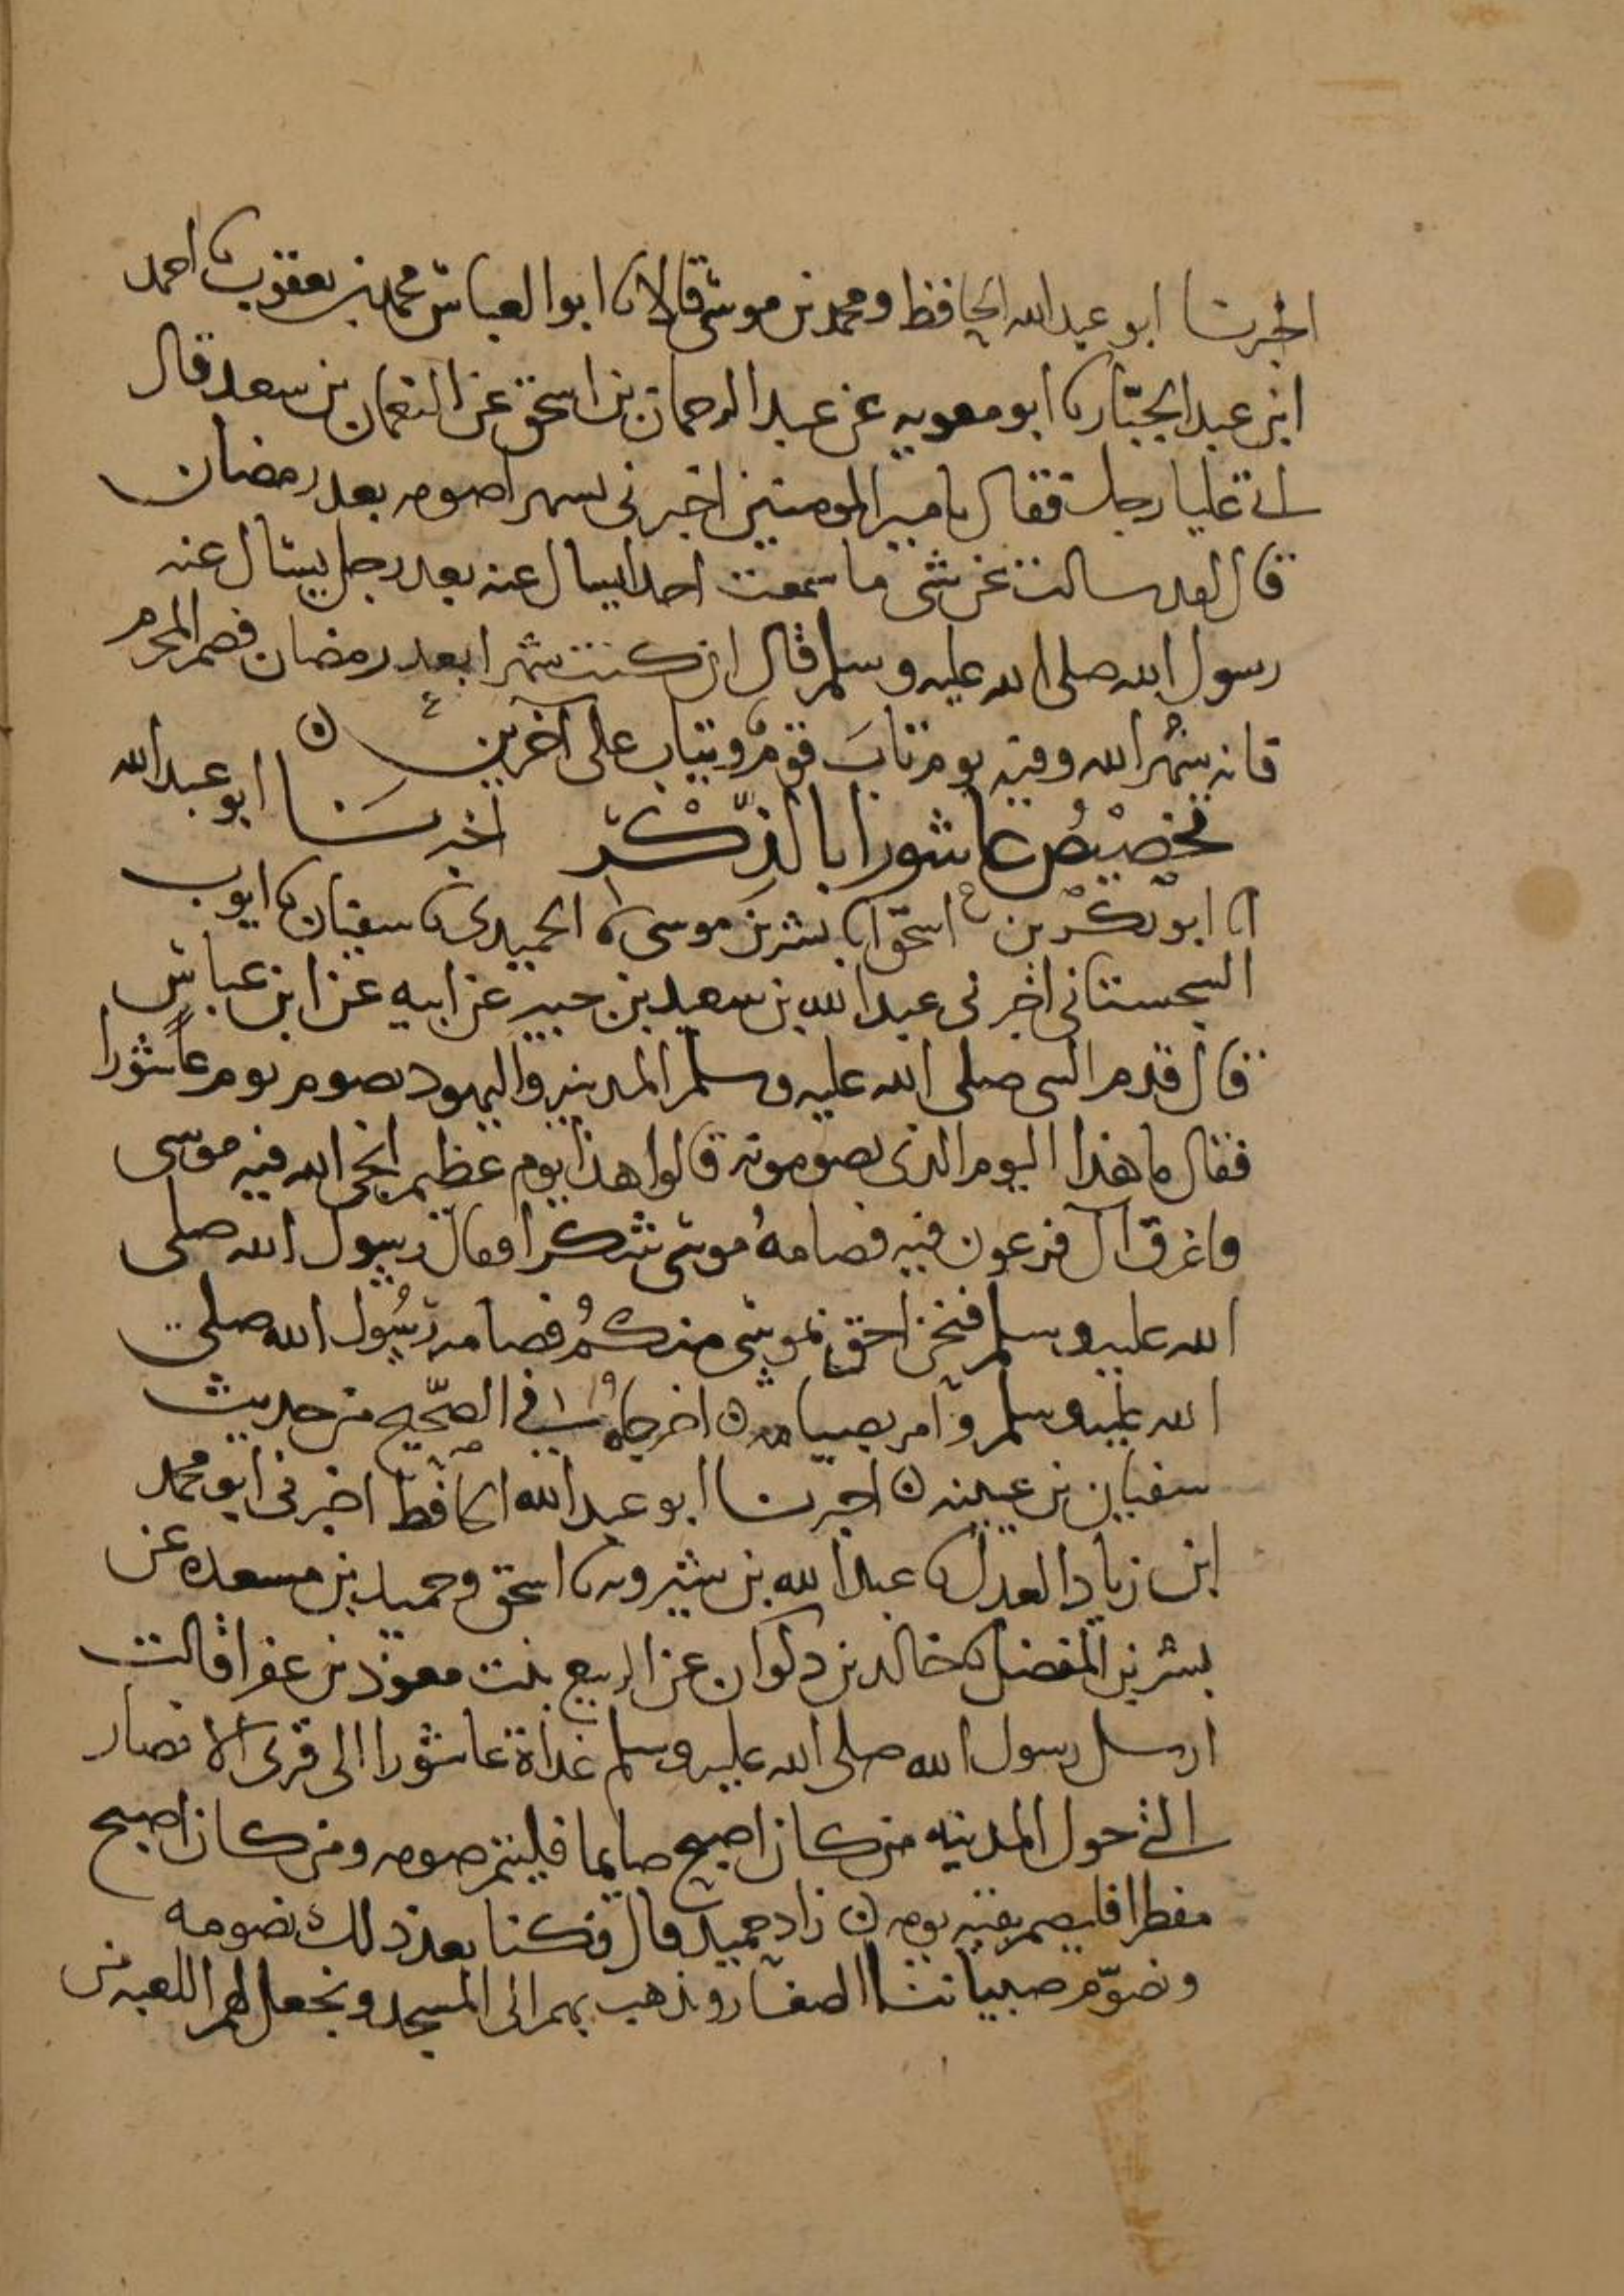 اخبرنا ابو عبد الله الحافظ ومحمد بن موسى قالا نا ابو العباس محمد بن يعقوب نا احمد
ابن عبد الجبار نا ابو معويه عن عبد الرحمان بن اسحق عن النعمان بن سعد قال
اتى عليا رجل فقال يامير المومنين اخبرنى بشهر اصومه بعد رمضان
قال لقد سالت عن شى ما سمعت احدا يسال عنه بعد رجل يسال عنه
رسول الله صلى الله عليه وسلم قال ان كنت شهرا بعد رمضان فصم المحرم
فانه شهر الله وفيه يوم تابَ قومٌ ويتاب على آخرين ن
تخصيص عاشورا بالذكر اخبرنا ابو عبد الله
انا ابو بكر بن اسحق انا بشر بن موسى نا الحميدى نا سفيان نا ايوب
السجستانى اخبرنى عبد الله بن سعيد بن جبير عن ابيه عن ابن عباس
قال قدم النبى صلى الله عليه وسلم المدينه واليهود تصوم يوم عاشورا
فقال ما هذا اليوم الذى تصومونه قالوا هذا يوم عظيم انجى الله فيه موسى
واغرق آل فرعون فيه فصامهُ موسى شكرا فقال رسول الله صلى
الله عليه وسلم فنحن احق بموسى منكُم فصامه رسُول الله صلى
الله عليه وسلم وامر بصيامه ن اخرجاه فى الصّحيح من حديث
سفيان بن عيينه ن اخبرنا ابو عبد الله الحافظ اخبرنى ابو محمد
ابن زياد العدل نا عبد الله بن شيرويه نا اسحق وحميد بن مسعده عن
بشر بن المفضل نا خالد بن ذكوان عن الربيع بنت معوذ بن عفرا قالت
ارسل رسول الله صلى الله عليه وسلم غداة عاشورا الى قرى الانصار
التى حول المدينه من كان اصبح صايما فليتم صومه ومن كان اصبح
مفطرا فليصم بقيه يومه ن زاد حميد قال فكنا بعد ذلك نصومه
ونصوّم صبياننا الصغار ونذهب بهم الى المسجد ونجعل لهم اللعبه من